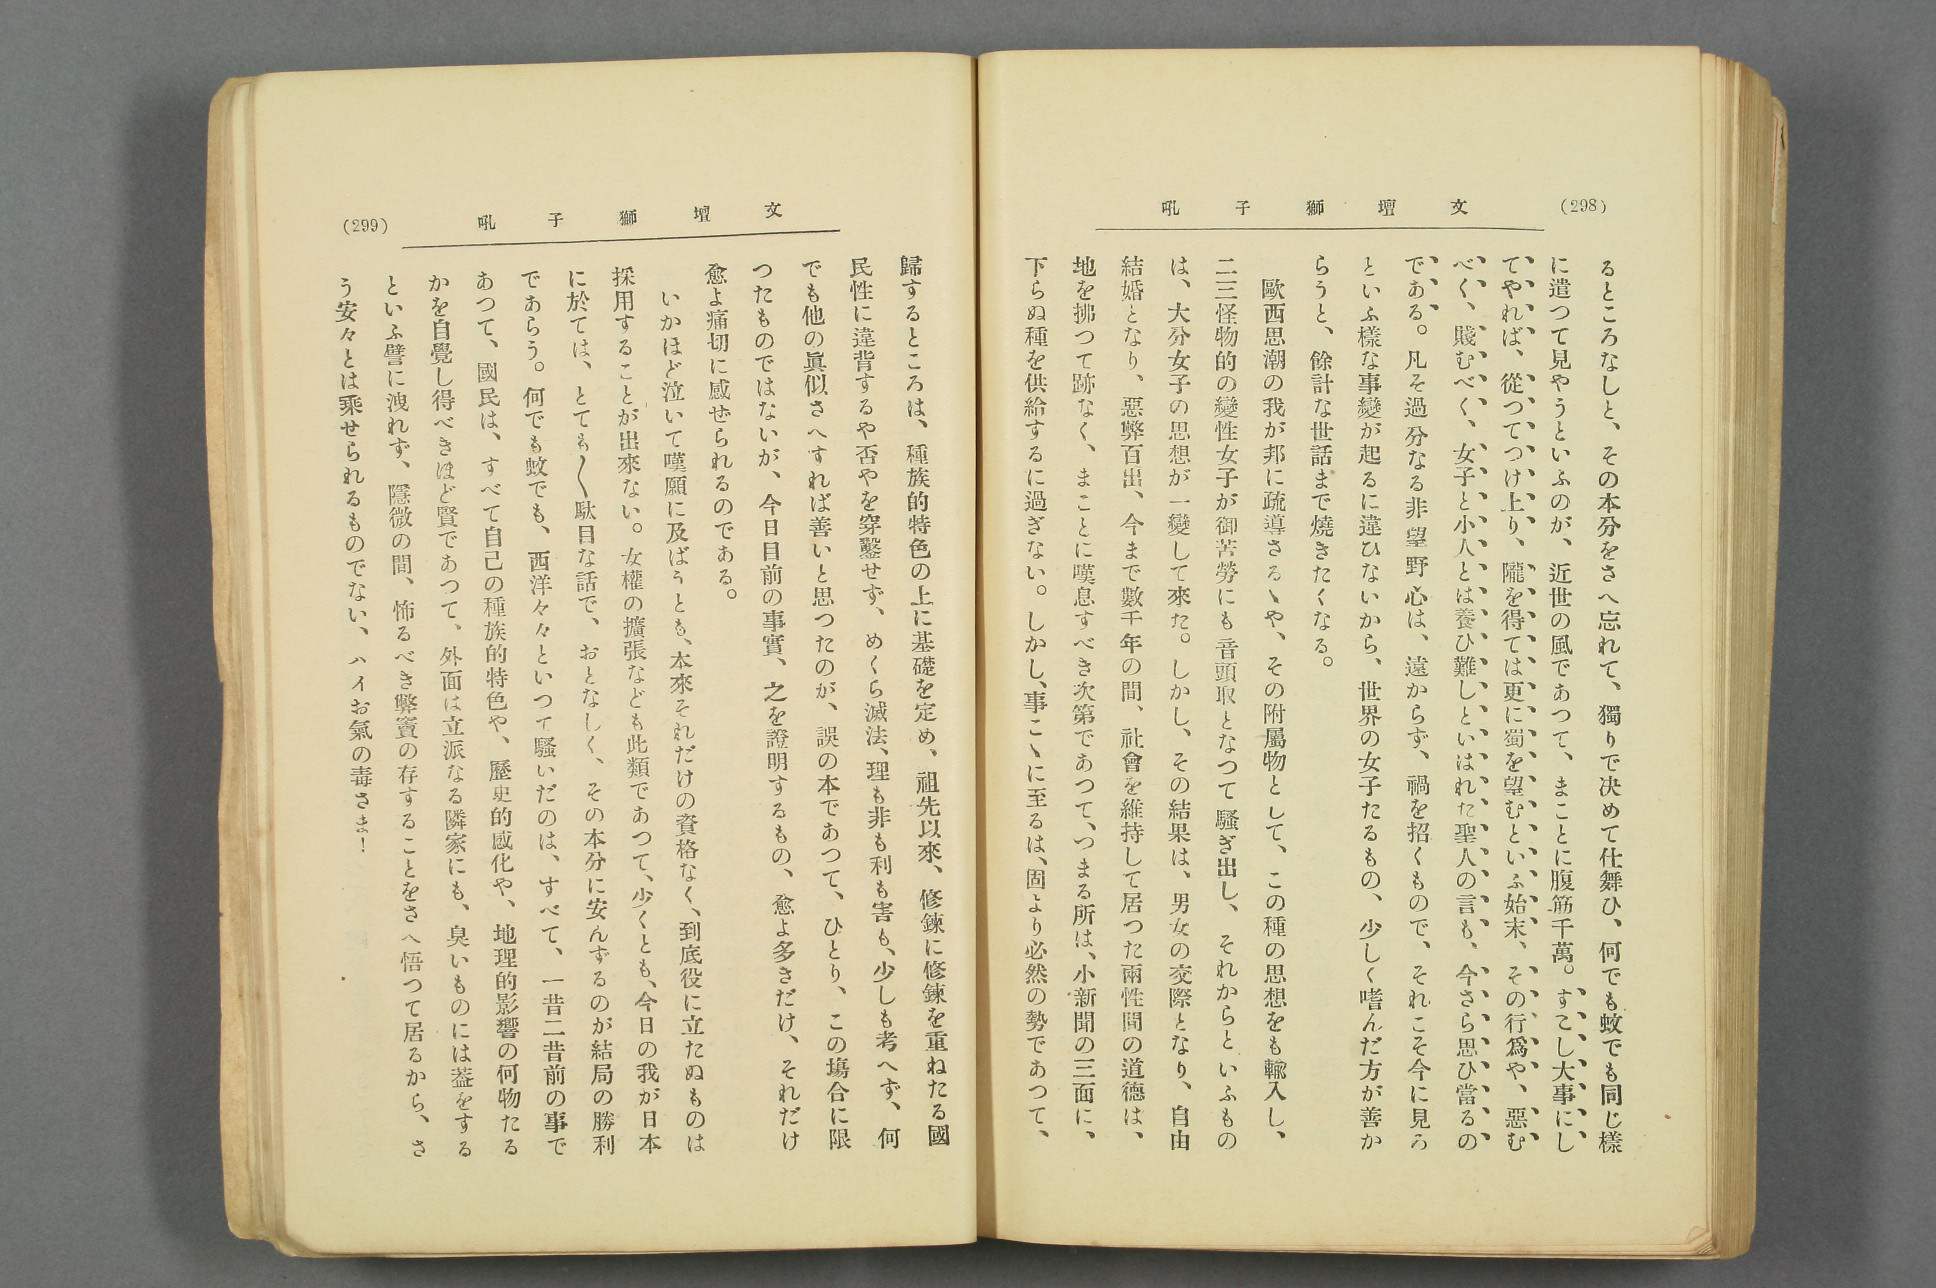 (298)
文壇獅子吼
るところなしと、その本分をさへ忘れて、獨りで決めて仕舞ひ、何でも蚊でも同じ樣
に遣つて見やうといふのが、近世の風であつて、まことに腹筋千萬。すこし大事にし
てやれば、從つてつけ上り、隴を得ては更に蜀を望むといふ始末、その行爲や、惡む
べく、賤むべく、女子と小人とは養ひ難しといはれた聖人の言も、今さら思ひ當るの
である。凡そ過分なる非望野心は、遠からず、禍を招くもので、それこそ今に見ろ
といふ樣な事變が起るに違ひないから、世界の女子たるもの、少しく嗜んだ方が善か
らうと、餘計な世話まで燒きたくなる。
歐西思潮の我が邦に疏導さるゝや、その附屬物として、この種の思想をも輸入し、
二三怪物的の變性女子が御苦勞にも音頭取となつて騷ぎ出し、それからといふもの
は、大分女子の思想が一變して來た。しかし、その結果は、男女の交際となり、自由
結婚となり、惡弊百出、今まで數千年の間、社會を維持して居つた兩性間の道德は、
地を拂つて跡なく、まことに嘆息すべき次第であつて、つまる所は、小新聞の三面に、
下らぬ種を供給するに過ぎない。しかし、事こゝに至るは、固より必然の勢であつて、
(299)
文壇獅子吼
歸するところは、種族的特色の上に基礎を定め、祖先以來、修鍊に修鍊を重ねたる國
民性に違背するや否やを穿鑿せず、めくら滅法、理も非も利も害も、少しも考へず、何
でも他の眞似さへすれば善いと思つたのが、誤の本であつて、ひとり、この塲合に限
つたものではないが、今日目前の事實、之を證明するもの、愈よ多きだけ、それだけ
愈よ痛切に感ぜられるのである。
いかほど泣いて嘆願に及ばうとも、本來それだけの資格なく、到底役に立たぬものは
採用することが出來ない。女權の擴張なども此類であつて、少くとも、今日の我が日本
に於ては、とても〳〵駄目な話で、おとなしく、その本分に安んずるのが結局の勝利
であらう。何でも蚊でも、西洋々々といつて騷いだのは、すべて、一昔二昔前の事で
あつて、國民は、すべて自己の種族的特色や、歷史的感化や、地理的影響の何物たる
かを自覺し得べきほど賢であつて、外面は立派なる隣家にも、臭いものには葢をする
といふ譬に洩れず、隱微の間、怖るべき弊竇の存することをさへ悟つて居るから、さ
う安々とは乘せられるものでない、ハイお氣の毒さま！